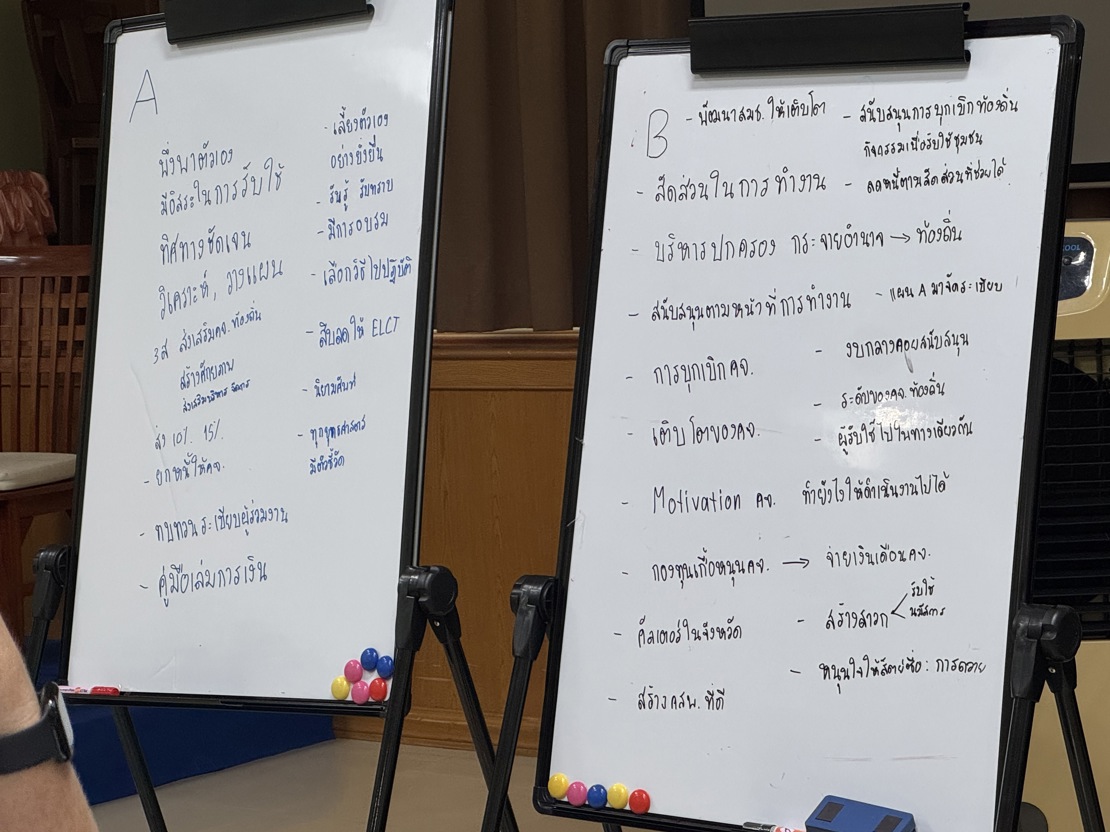 A
พึ่งพาตัวเอง
มีอิสระในการรับใช้
ทิศทางชัดเจน
วิเคราะห์, วางแผน
3 ส ส่งเสริมคจ. ท้องถิ่น
สร้างศักยภาพ
ส่งเสริมบริหาร จัดการ
ส่ง 10% 15%
- ยกหนี้ให้คจ.
- ทบทวนระเบียบผู้ร่วมงาน
- คู่มือเล่มการเงิน
- เลี้ยงตัวเอง
อย่างยั่งยืน
- รับรู้ รับทราบ
- มีการอบรม
- เลือกวิธีไปปฏิบัติ
- สืบลดให้ ELCT
- นิยามศัพท์
- ทุกยุทธศาสตร์
มีตัวชี้วัด
B
- พัฒนาสมช. ให้เติบโต
- สนับสนุนการบุกเบิกท้องถิ่น
กิจกรรมเพื่อรับใช้ชุมชน
- สัดส่วนในการทำงาน
- ลดหนี้ตามสัดส่วนที่ช่วยได้
- บริหารปกครอง กระจายอำนาจ → ท้องถิ่น
- สนับสนุนตามหน้าที่การทำงาน
- แผน A มาจัดระเบียบ
- การบุกเบิกคจ.
- งบกลางคอยสนับสนุน
- ระดับของคจ. ท้องถิ่น
- เติบโตของคจ.
- ผู้รับใช้ไปในทางเดียวกัน
- Motivation คจ. ทำยังไงให้ดำเนินงานไปได้
- กองทุนเกื้อหนุนคจ. → จ่ายเงินเดือนคจ.
- คัลเตอร์ในจังหวัด
- สร้างสาวก < รับใช้
นมัสการ
- หนุนใจให้สัตย์ซื่อ : การถวาย
- สร้างคสพ. ที่ดี
COOL